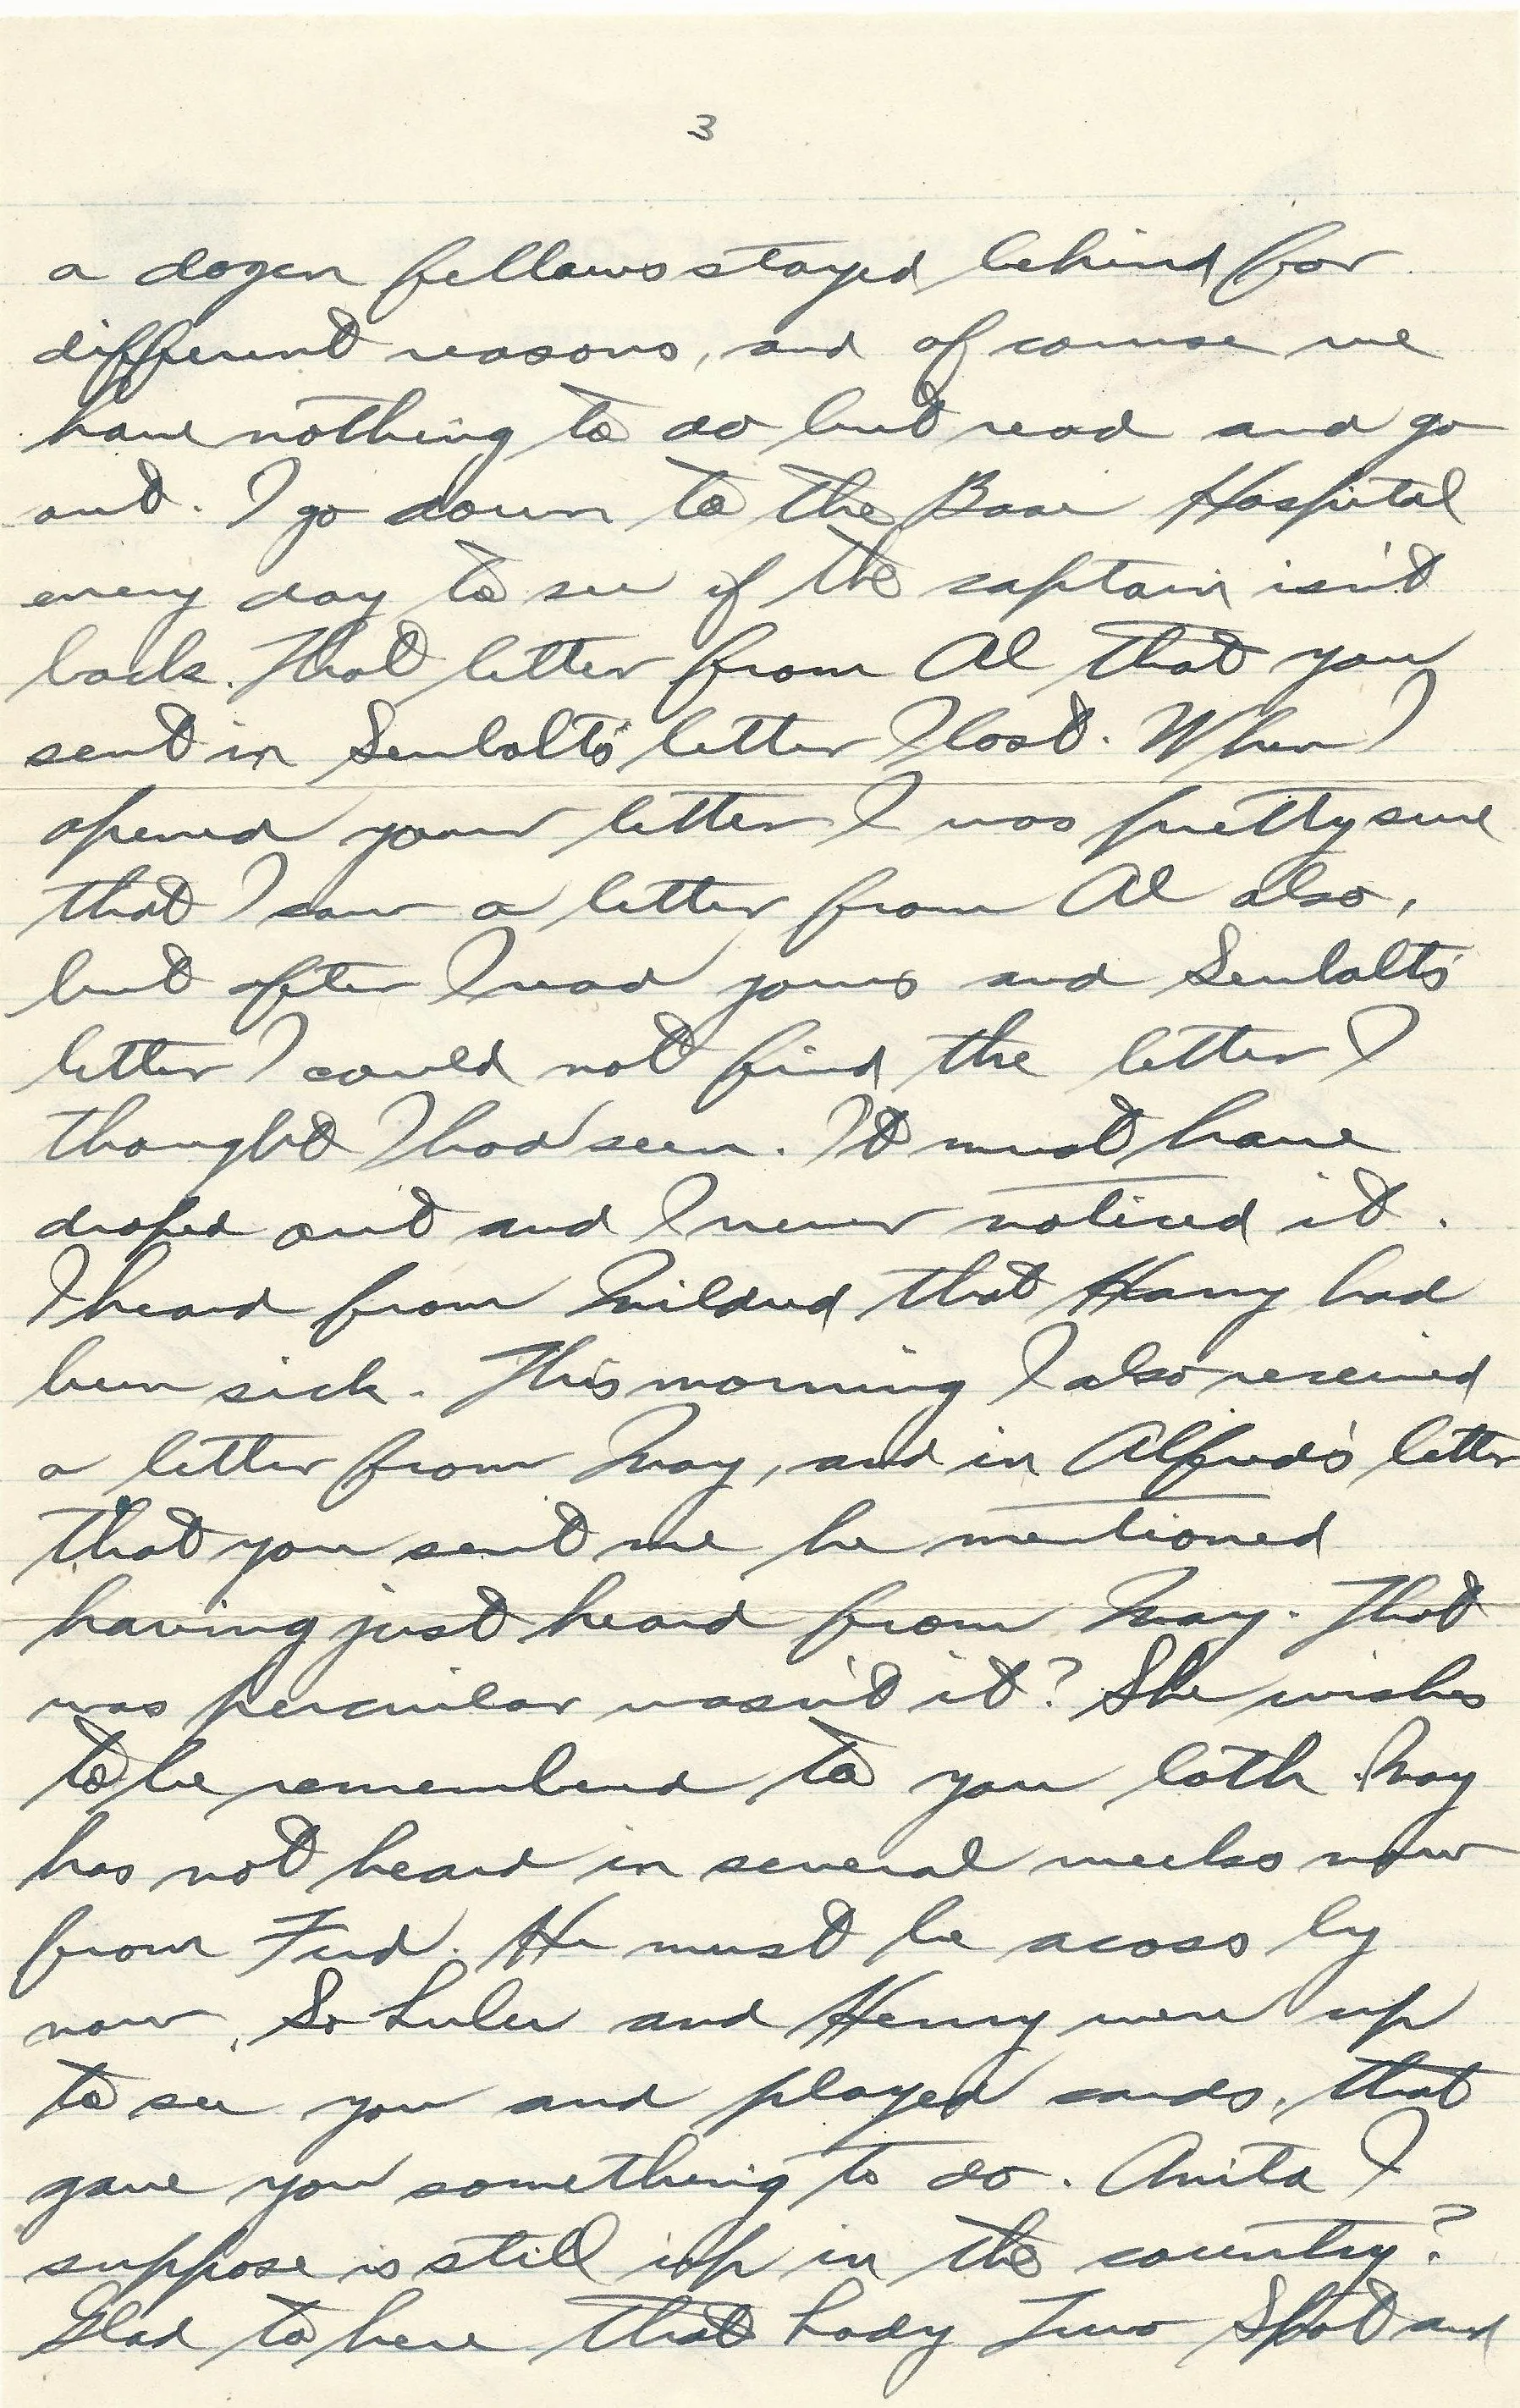 3
a dozen fellows stayed behind for
different reasons, and of course we
have nothing to do but read and go
out. I go down to the Base Hospital
every day to see if the captain isn't
back. That letter from Al that you
sent in Seubolt's letter I lost. When I
opened your letter I was pretty sure
that I saw a letter from Al also,
but after I read yours and Seubolt's
letter I could not find the letter I
thought I had seen. It must have
droped out and I never noticed it.
I heard from Mildred that Harry had
been sick. This morning I also received
a letter from May, and in Alfred's letter
that you sent me he mentioned
having just heard from May. That
was percuilar wasn't it? She wishes
to be remembered to you both. May
has not heard in several weeks now
from Fred. He must be acoss by
now. So Luleu and Henry were up
to see you and played cards, that
gave you something to do. Anita I
suppose is still up in the country?
Glad to here that Lady Two Spot and